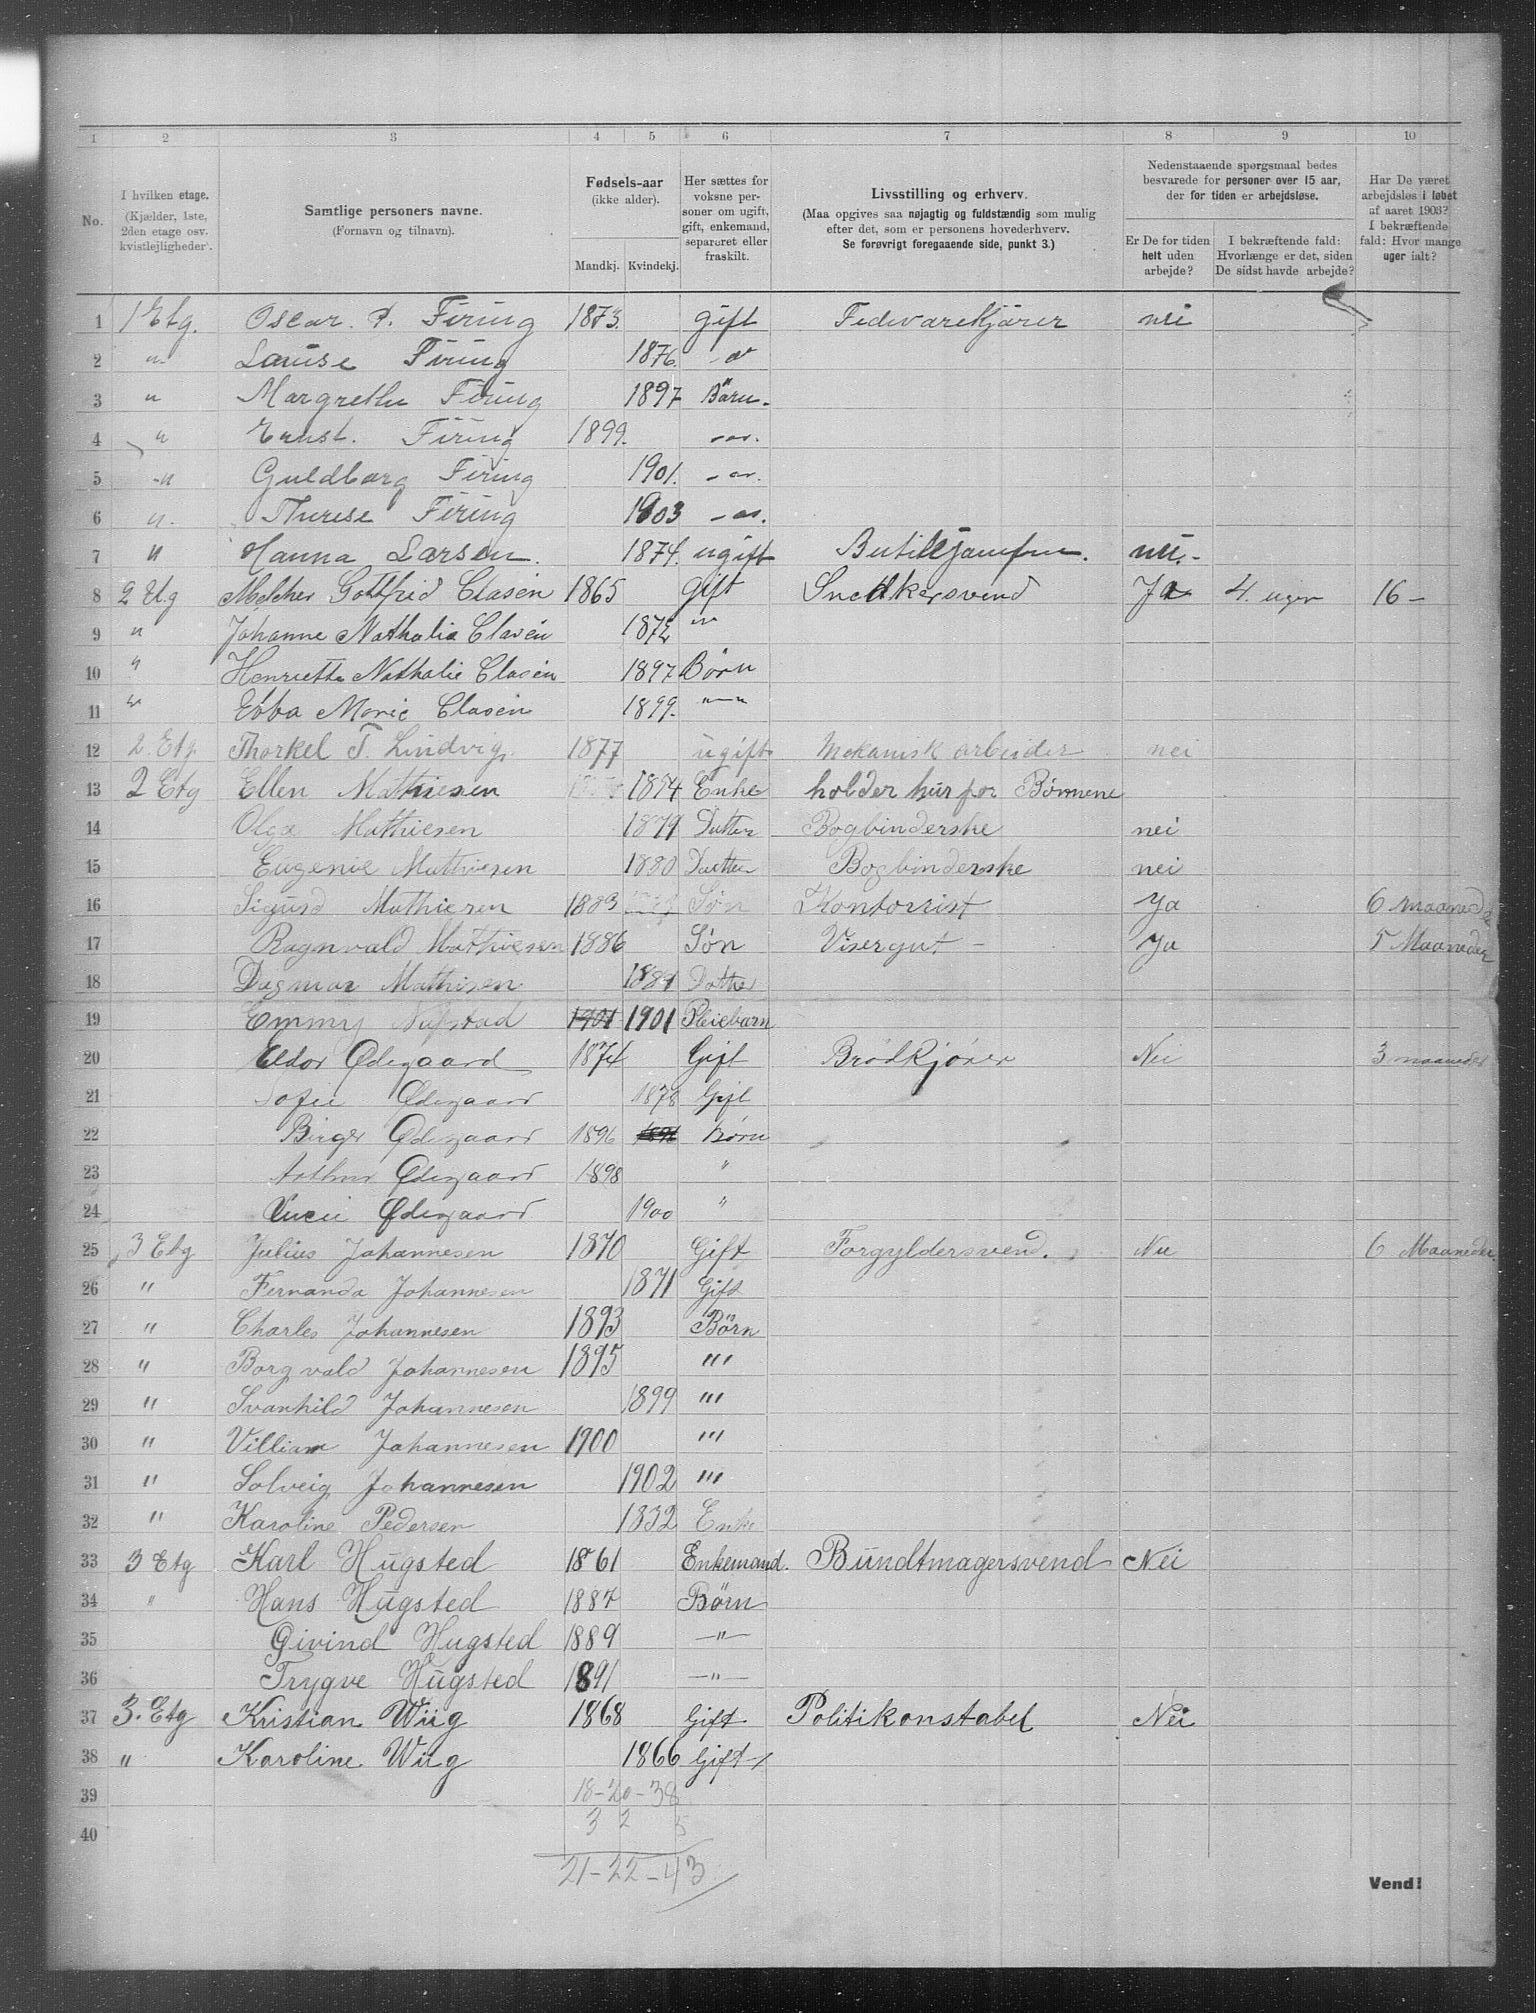 1 2 3 4 5 6 7 8 9 10
No. I hvilken etage. (Kjælder, 1ste, 2den etage osv. kvistlejligheder). Samtlige personers navne. (Fornavn og tilnavn). Fødsels-aar (ikke alder). Mandkj. Kvindekj. Her sættes for voksne personer om ugift, gift, enkemand, separeret eller fraskilt. Livsstilling og erhverv. (Maa opgives saa nøjagtig og fuldstændig som mulig efter det, som er personens hovederhverv. Se forøvrigt foregaaende side, punkt 3.) Nedenstaaende spørgsmaal bedes besvarede for personer over 15 aar, der for tiden er arbejdsløse. Er De for tiden helt uden arbejde? I bekræftende fald: Hvorlænge er det, siden De sidst havde arbejde? Har De været arbejdsløs i løbet af aaret 1903? I bekræftende fald: Hvor mange uger ialt?
1 1 Etg. Oscar. P. Firing 1873. gift Fedevarekjører nei
2 " Louise Firing 1876.
3 " Margrethe Firing 1897 Børn.
4 " Ernst. Firing 1899.
5 -" Guldborg Firing 1901.
6 ". Therese Firing 1903
7 " Hanna Larsen. 1874. ugift Butikjomfru. nei.-
8 2 Etg Melcher Gottfried Clasen 1865 gift Snedkersvend Ja 4 uger 16 -
9 " Johanne Nathalie Clasen 1872 "
10 " Henriette Nathalie Clasen 1897 Børn
11 " Ebba Marie Clasen 1899. "—"
12 2. Etg Thorkel T. Lindvig. 1877 ugift Mekanisk arbeider nei
13 2 Etg Ellen Mathiesen 1854 Enke holder hus for Børnene
14 Olga Mathiesen 1879 Datter Bogbinderske nei
15 Eugenie Mathiesen 1880 Datter Bogbinderske nei
16 Sigurd Mathiesen 1883 Søn Kontorist Ja 6 maaneder
17 Ragnvald Mathiesen 1886 Søn Visergut - Ja 5 Maaneder
18 Dagmar Mathisen 1889 Datter
19 Emmy Nafstad 1901 1901 Pleiebarn
20 Eldor Ødegaard 1874 Gift Brødkjører Nei 3 maaneder
21 Sofie Ødegaard 1878 Gift
22 Birger Ødegaard 1896 1896 Børn
23 Arthur Ødegaard 1898 "
24 Ødegaard 1900 "
25 3 Etg Julius Johannesen 1870 Gift Forgyldersvend. Nei 6 Maaneder.
26 " Fernanda Johannesen 1871 Gift
27 " Charles Johannesen 1893 Børn
28 " Borgvald Johannesen 1895 "'
29 " Svanhild Johannesen 1899 "'
30 " Villiam Johannesen 1900 "'
31 " Solveig Johannesen 1902 "'
32 " Karoline Pedersen 1832 Enke
33 3 Etg Karl Hugsted 1861 Enkemand. Bundtmagersvend Nei
34 " Hans Hugsted 1887 Børn
35 Øivind Hugsted 1889 —"—
36 Trygve Hugsted 1891 —"—
37 3. Etg Kristian Wiig 1868 Gift Politikonstabel Nei
38 " Karoline Wiig 1866 Gift
39 18-20-38
40 3 2 5
21-22-43
Vend!